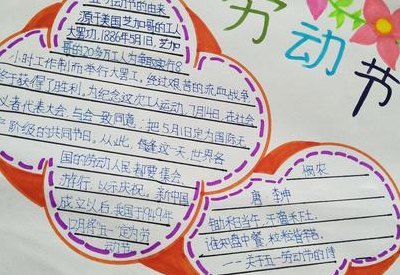 劳动节
劳动节的由来
源于美国芝加哥的工人
大罢工,1886年5月1日,芝加
哥的20多万工人为争取实行8
小时工作制而举行大罢工,经过艰苦的流血战争,
终于获得了胜利。为纪念这次工人运动,7月14日,在社会
义者代表大会,与会一致同意:把5月1日定为国际无
产阶级的共同节日。从此,每逢这一天,世界各
国的劳动人民都要集会、
游行,以示庆祝。新中国
成立以后,我国于1949年
12月将五一定为节
动节
悯农
唐 李坤
锄禾日当午,汗滴禾下土。
谁知盘中餐,粒粒皆辛苦。
——关于五一劳动节的诗